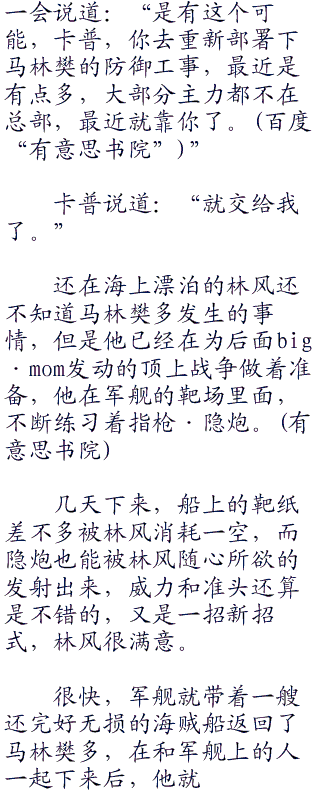 一会说道：“是有这个可
能，卡普，你去重新部署下
马林樊的防御工事，最近是
有点多，大部分主力都不在
总部，最近就靠你了。(百度
“有意思书院”)”
卡普说道：“就交给我
了。”
还在海上漂泊的林风还
不知道马林樊多发生的事
情，但是他已经在为后面big
·mom发动的顶上战争做着准
备，他在军舰的靶场里面，
不断练习着指枪·隐炮。(有
意思书院)
几天下来，船上的靶纸
差不多被林风消耗一空，而
隐炮也能被林风随心所欲的
发射出来，威力和准头还算
是不错的，又是一招新招
式，林风很满意。
很快，军舰就带着一艘
还完好无损的海贼船返回了
马林樊多，在和军舰上的人
一起下来后，他就